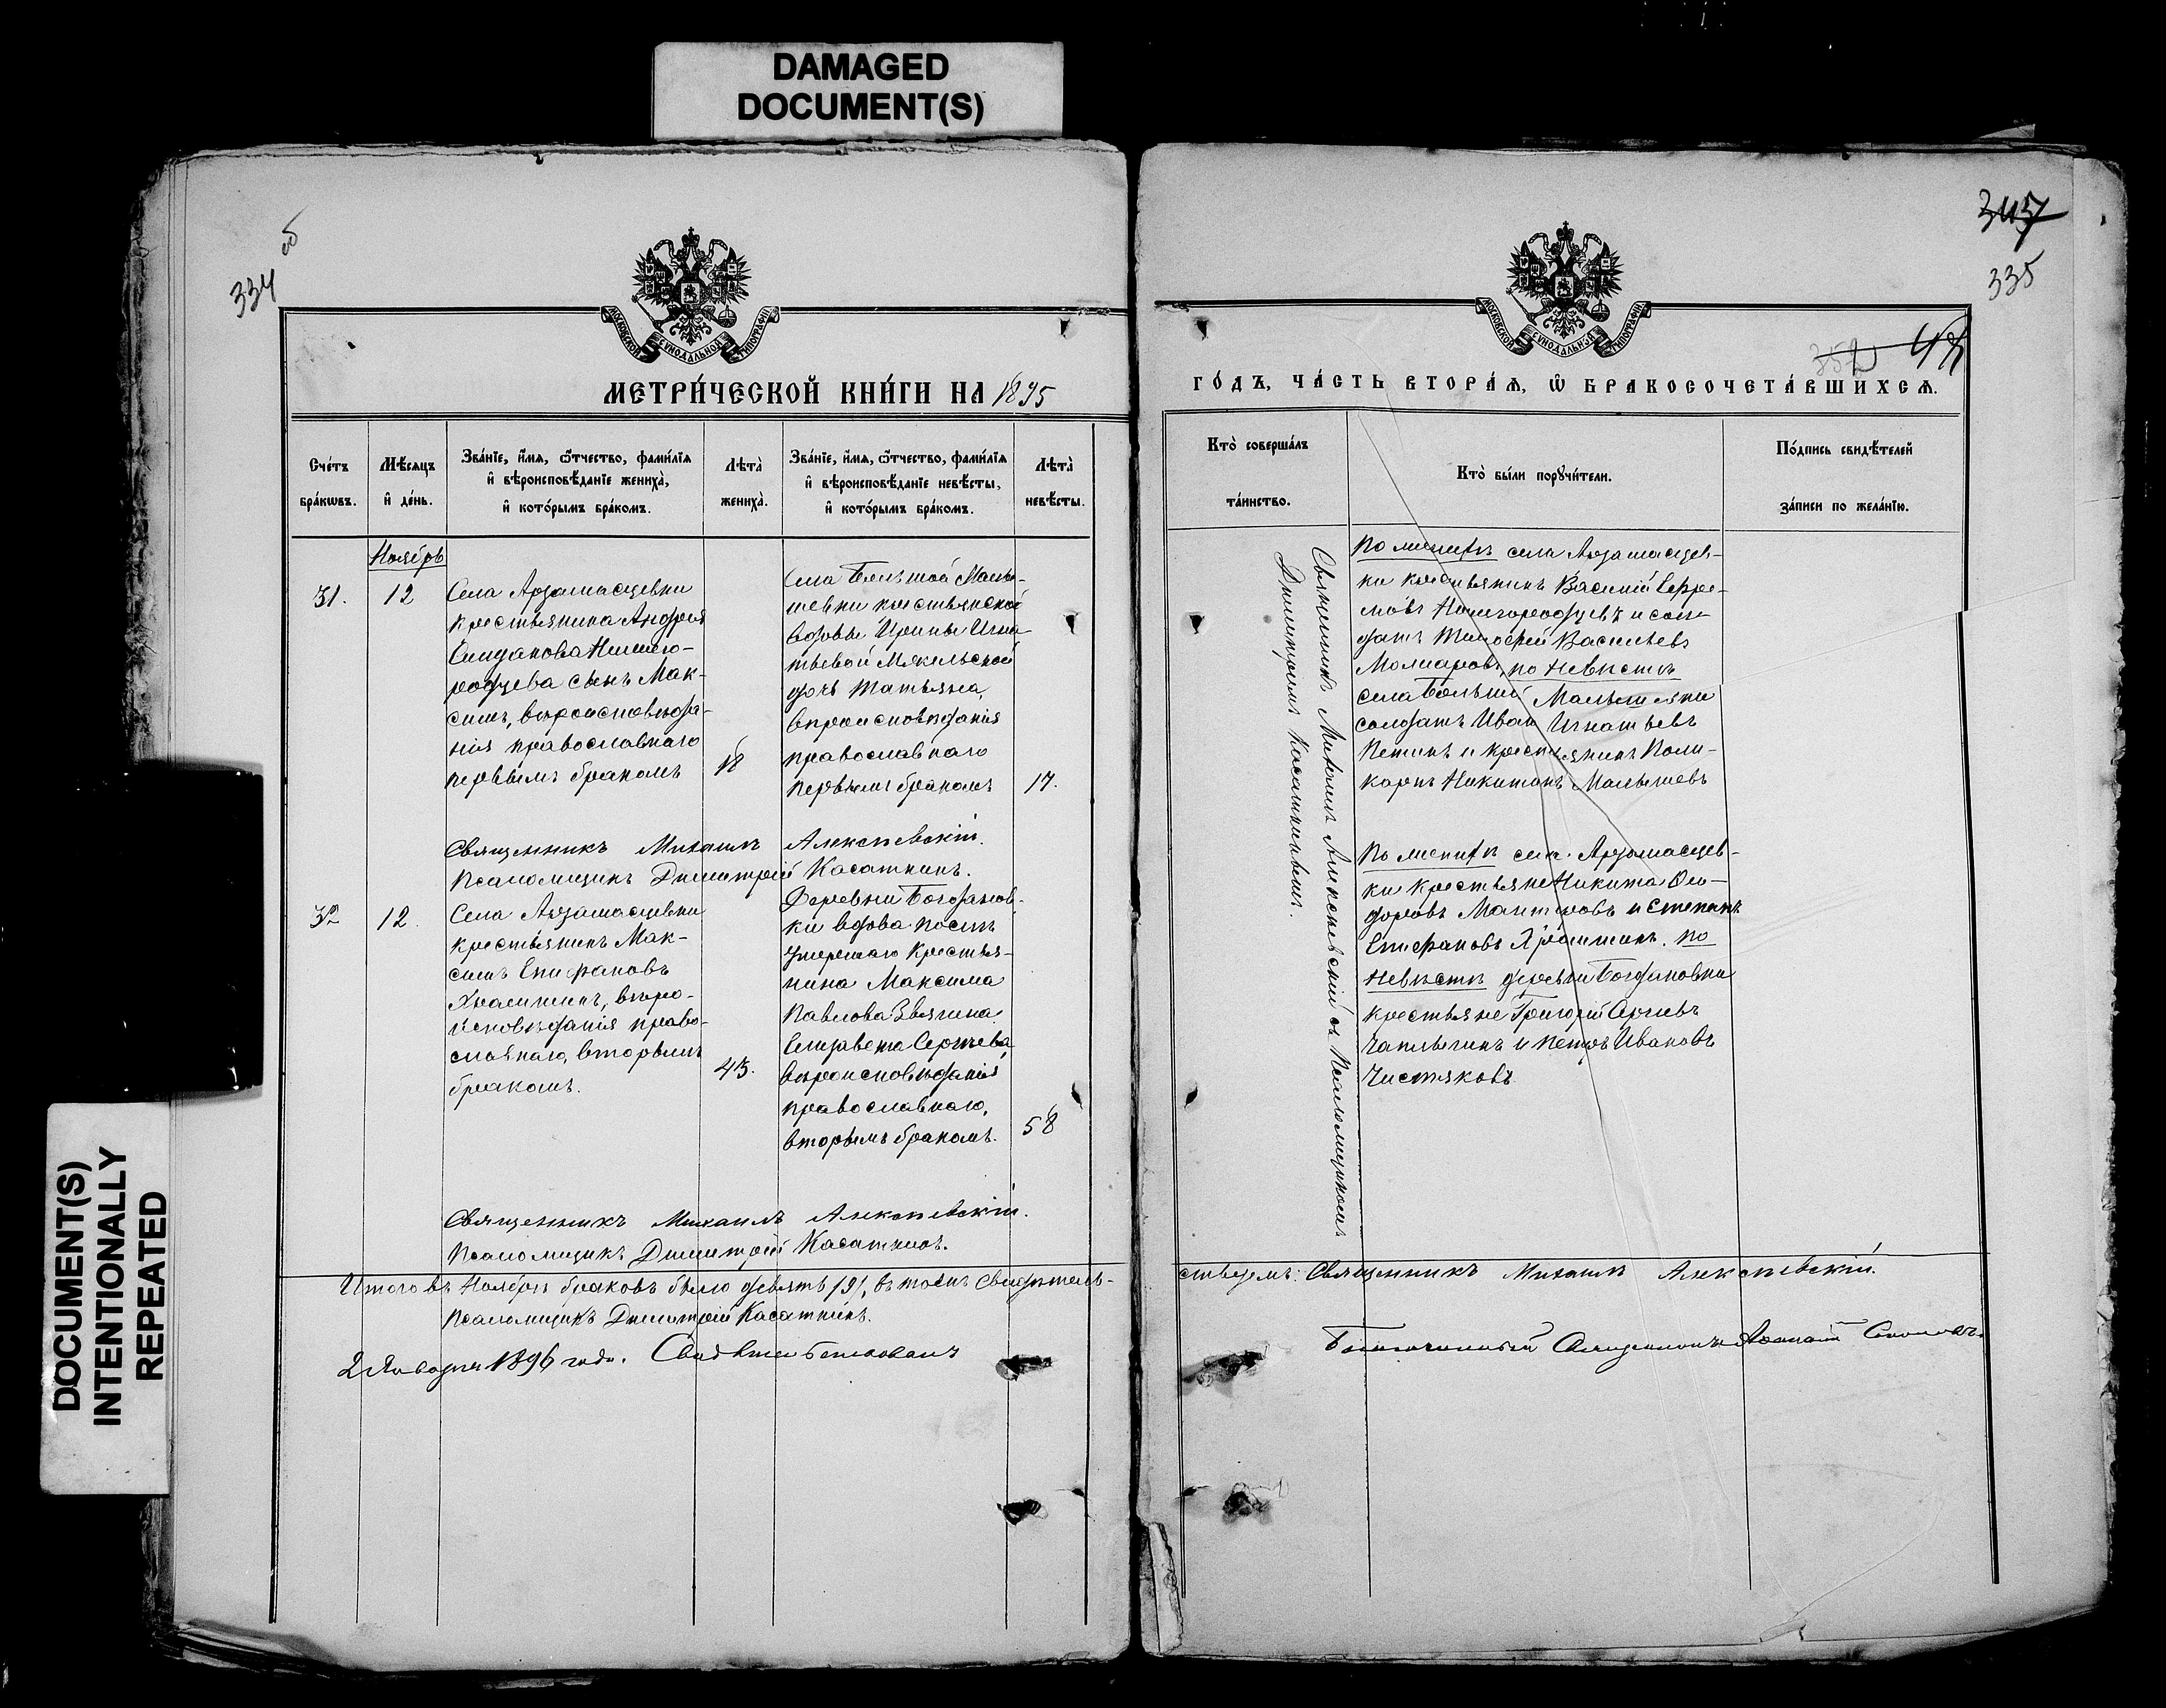 DAMAGED
DOCUMENT(S)
334
об
МОСКОВСКОЙ СУНОДАЛЬНОЙ ТИПОГРАФІИ
МЕТРИ́ЧЕСКОЙ КНИ́ГИ НА 1895
Сче́тъ бра́кѡвъ.
Мѣ́сяцъ и҆ де́нь.
Зва́нїе, и҆́мѧ, ѻ҆́тчество, фами́лїѧ и҆ вѣроисповѣ́данїе жениха̀, и҆ кото́рымъ бра́комъ.
Лѣта̀ жениха̀.
Зва́нїе, и҆́мѧ, ѻ҆́тчество, фами́лїѧ и҆ вѣроисповѣ́данїе невѣ́сты, и҆ кото́рымъ бра́комъ.
Лѣта̀ невѣ́сты.
Ноябрь
31.
12
Села Арзамасцевки
крестьянина Андрея
Нижего-
родцева сынъ Мак-
симъ, вѣроисповѣда-
нія православнаго
первымъ бракомъ
18
Села Большой Малы-
шевки крестьянской
вдовы Ирины Игна-
тьевой Мякельской
дочь Татьяна,
вѣроисповѣданія
православнаго
первымъ бракомъ
17.
Священникъ Михаилъ Алексѣевскій.
Псаломщикъ Димитрій Касаткинъ.
32
12.
Села Арзамасцевки
крестьянинъ Мак-
симъ Епифановъ
Храмшинъ, вѣро-
исповѣданія право-
славнаго, вторымъ
бракомъ.
43.
Деревни Богданов-
ки вдова послѣ
умершаго крестья-
нина Максима
Павлова Звягина
Елизавета Сергѣева
вѣроисповѣданія
православнаго,
вторымъ бракомъ.
58
Священникъ Михаилъ Алексѣевскій.
Псаломщикъ Димитрій Касаткинъ.
Итого въ Ноябрѣ браковъ было девять /9/, въ томъ свидѣтель-
Псаломщикъ Димитрій Касаткинъ.
2 Января 1896 года.
DOCUMENT(S)
INTENTIONALLY
REPEATED
345
335
352
47
МОСКОВСКОЙ СУНОДАЛЬНОЙ ТИПОГРАФІИ
ГО́ДЪ, ЧА́СТЬ ВТОРА́Ѧ, Ѽ БРАКОСОЧЕТА́ВШИХСѦ.
Кто̀ соверша́лъ та́инство.
Кто̀ бы́ли порꙋчи́тели.
По́дпись свидѣ́телей за́писи по жела́нїю.
Священникъ Михаилъ Алексѣевскій съ Псаломщикомъ
Димитріемъ Касаткинымъ.
По женихѣ села Арзамасцев-
ки крестьянинъ Василій Ефре-
мовъ Нижегородцевъ и сол-
датъ Тимофей Васильевъ
Моляровъ, по невѣстѣ
села Большой Малышевки
солдатъ Иванъ Игнатьевъ
Петинъ и крестьянинъ Поли-
карпъ Никитинъ Малышевъ
По женихѣ села Арзамасцев-
ки крестьяне Никита Ѳео-
доровъ и Степанъ
Епифановъ Храмшинъ. по
невѣстѣ деревни Богдановки
крестьяне Григорій Сергѣевъ
Чаплыгинъ и Петръ Ивановъ
Чистяковъ
ствуемъ: Священникъ Михаилъ Алексѣевскій.
Благочинный Священникъ